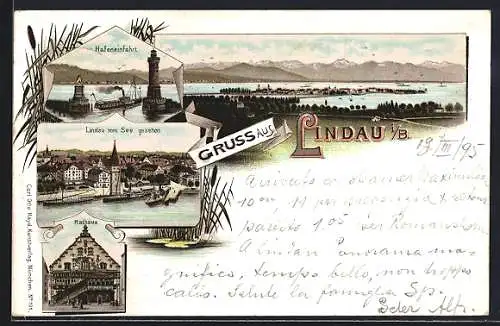 Hafeneinfahrt.
Lindau vom See gesehen.
Rathaus
GRUSS AUS
LINDAU i/B.
19/VIII/95
Arrivato a
10 , 11 per
parto 1.05 per Romanshorn
A Lindau Panorama mag-
nifico, tempo bello, non troppo
caldo. Salute la famiglia
Carl Otto Hayd Kunstverlag, München. No